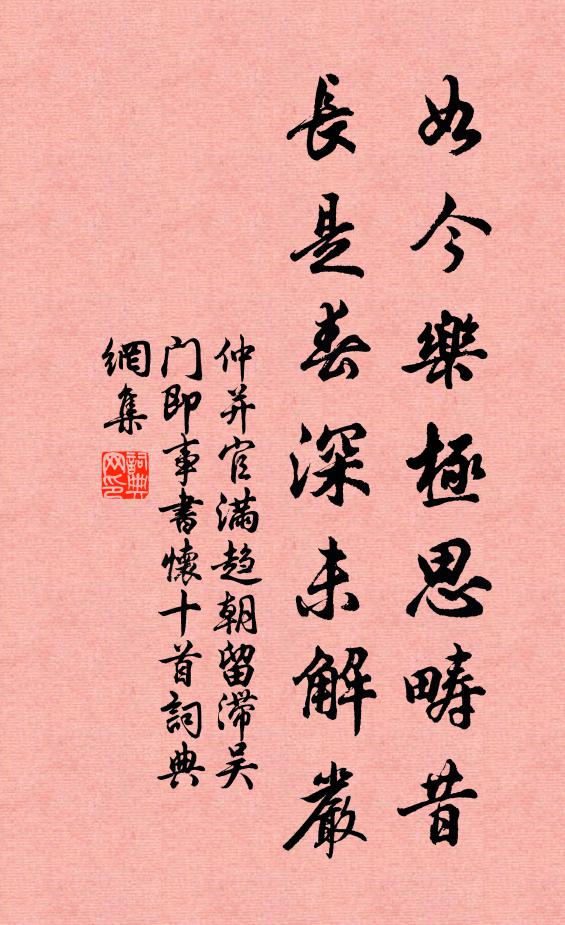 如今樂極思疇昔
長是春深未解嚴
仲并官滿趋朝留滯吴
门即事書懷十首詞典
網集
詞典
网印